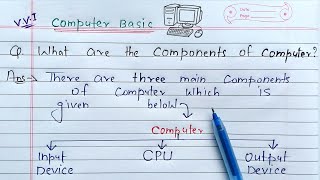 V.V.I Computer Basic
Date
Page
Q. What are the Components of Computer?
Ans→ There are three main Components
of Computer which is
given below
Computer
Input CPU Output
Device Device